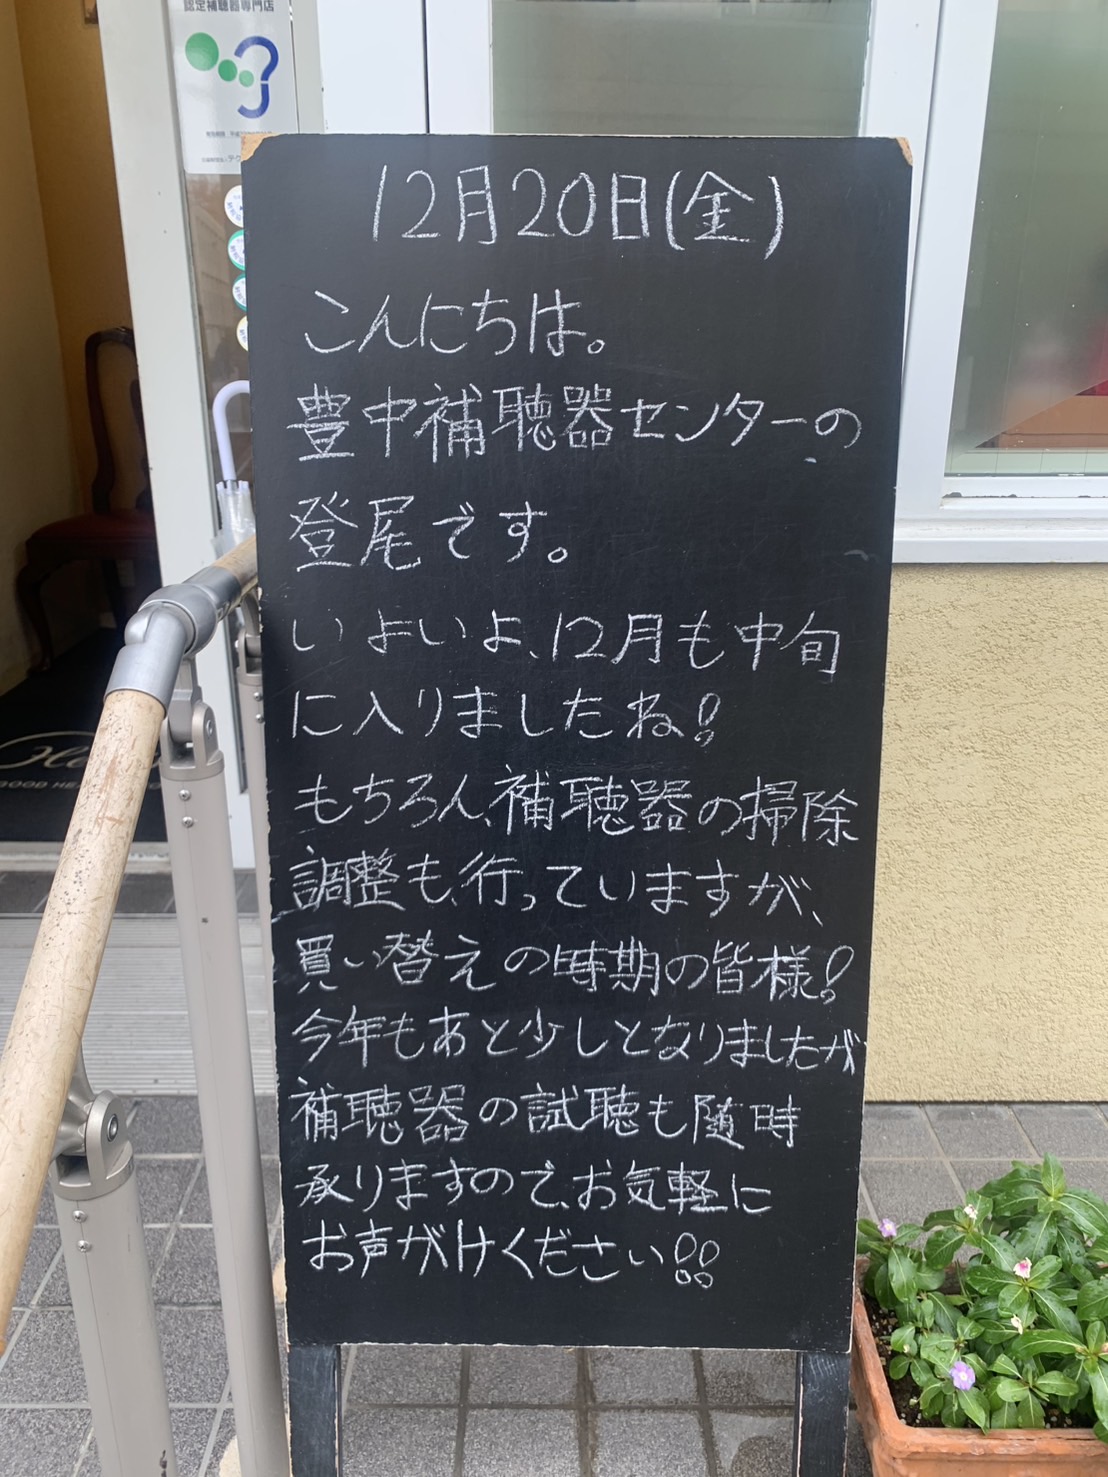 認定補聴器専門店
12月20日(金)
こんにちは。
豊中補聴器センターの
登尾です。
いよいよ、12月も中旬
に入りましたね!
もちろん、補聴器の掃除
調整も、行っていますが、
買い替えの時期の皆様!
今年もあと少しとなりましたが
補聴器の試聴も随時
承りますので、お気軽に
お声がけください!!